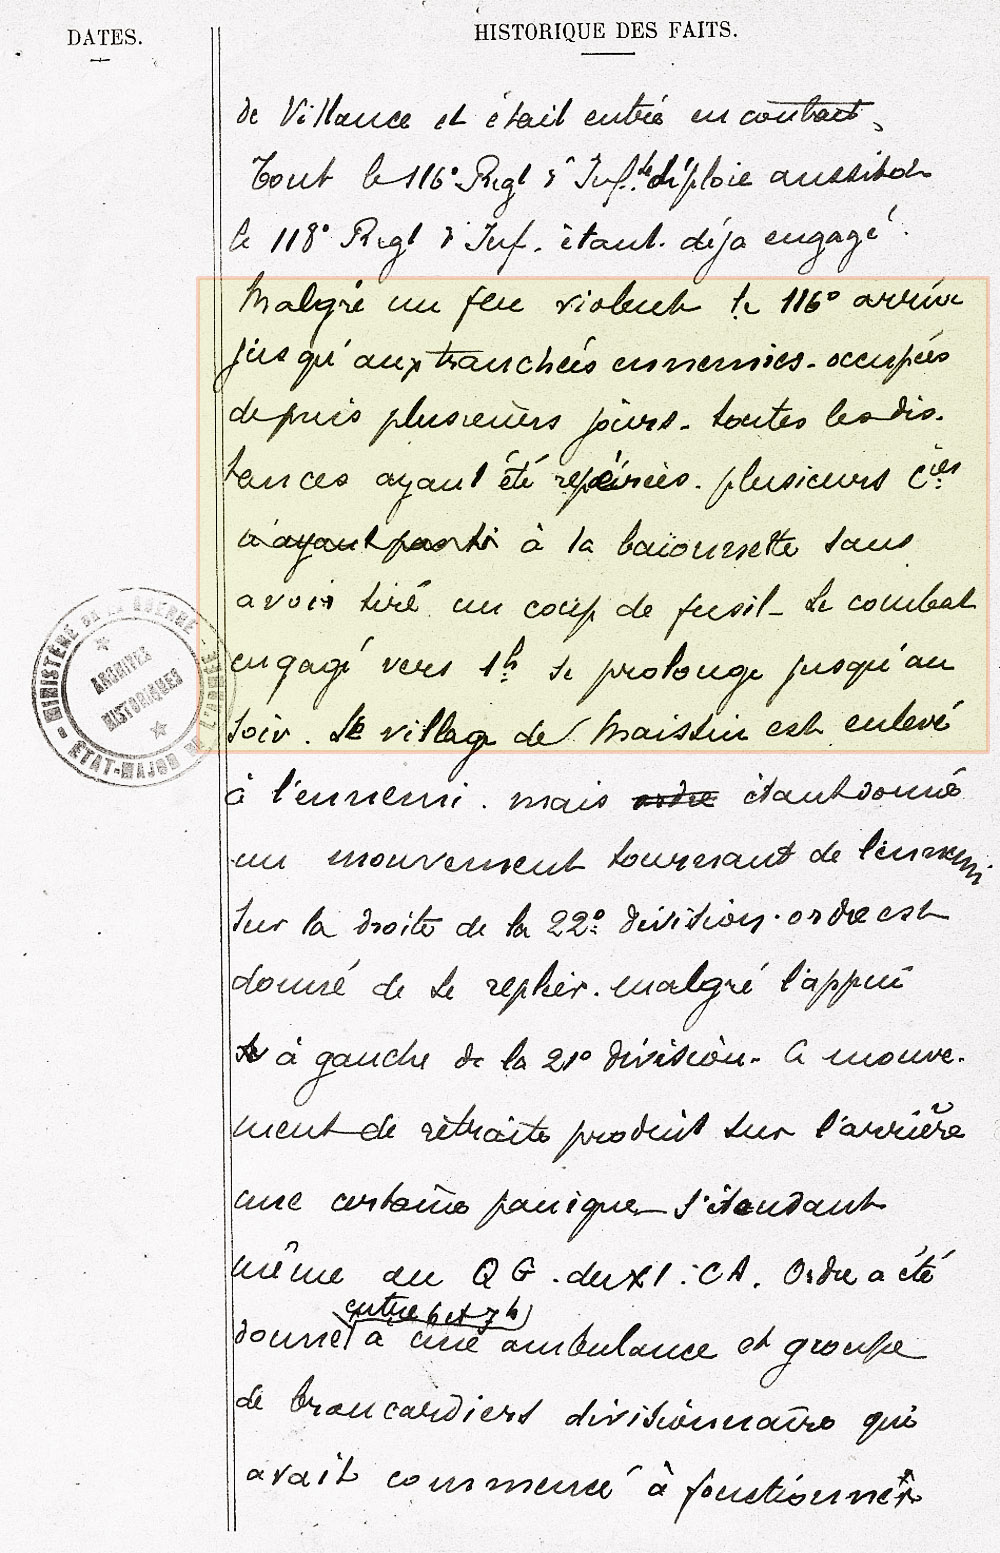 DATES.
HISTORIQUE DES FAITS.
de Villance et était entrée en contact,
Tout le 116e Regt d'Inf. se déploie aussitot
le 118e Regt d'Inf. étant déja engagé.
Malgré un feu violent le 116e arrive
jusqu'aux tranchées ennemies. occupées
depuis plusieurs jours. toutes les dis-
tances ayant été repérées. plusieurs Cies
à la baïonnette sans
avoir tiré un coup de fusil. Le combat
engagé vers 1h. se prolonge jusqu'au
soir. Le village de Maissin est enlevé
à l'ennemi. mais ordre étant donné
un mouvement tournant de l'ennemi
sur la droite de la 22e division. ordre est
donné de se replier. malgré l'appui
à gauche de la 21e division. Ce mouve-
ment de retraite produit sur l'arrière
une certaine panique s'étendant
même au QG. du XI. CA. Ordre a été
entre 6 et 7h
donné à une ambulance et groupe
de brancardiers divisionnaire qui
avait commencé à fonctionner
MINISTÈRE DE LA GUERRE
ÉTAT-MAJOR DE L'ARMÉE
ARCHIVES
HISTORIQUES